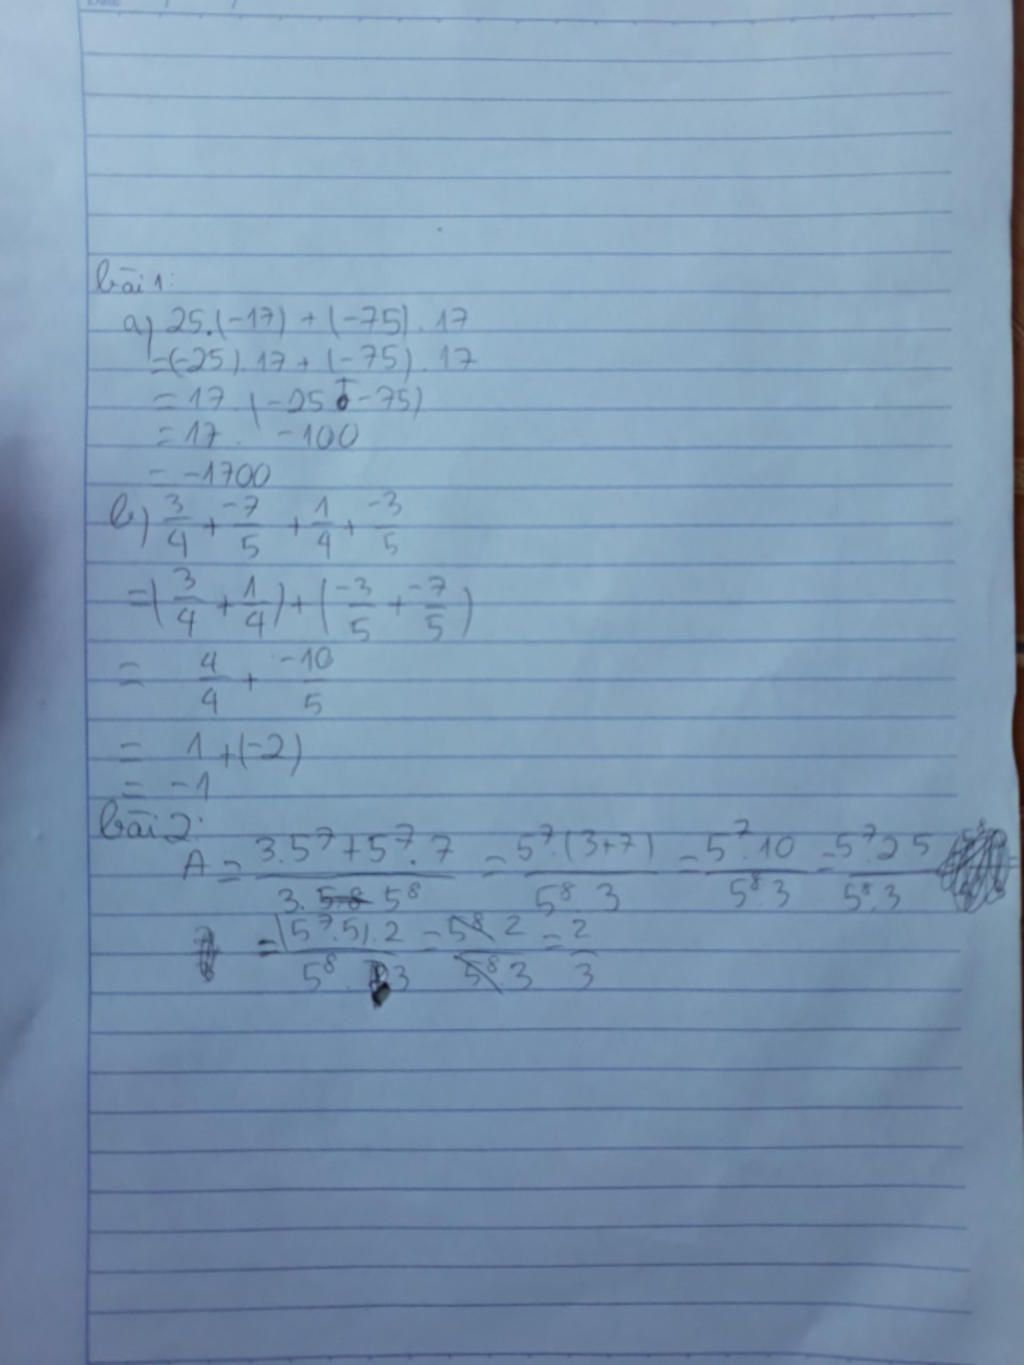 bài 1:
a) 25.(-17) + (-75).17
=(-25).17 + (-75).17
= 17.(-25 + -75)
= 17. -100
= -1700
b) 3/4 + -7/5 + 1/4 + -3/5
=(3/4 + 1/4) + (-3/5 + -7/5)
= 4/4 + -10/5
= 1 + (-2)
= -1
bài 2:
A = 3.5⁷+5⁷.7 / 3.5⁸ = 5⁷.(3+7) / 5⁸.3 = 5⁷.10 / 5⁸.3 = 5⁷.2.5 / 5⁸.3
= (5⁷.5).2 / 5⁸.3 = 5⁸.2 / 5⁸.3 = 2/3